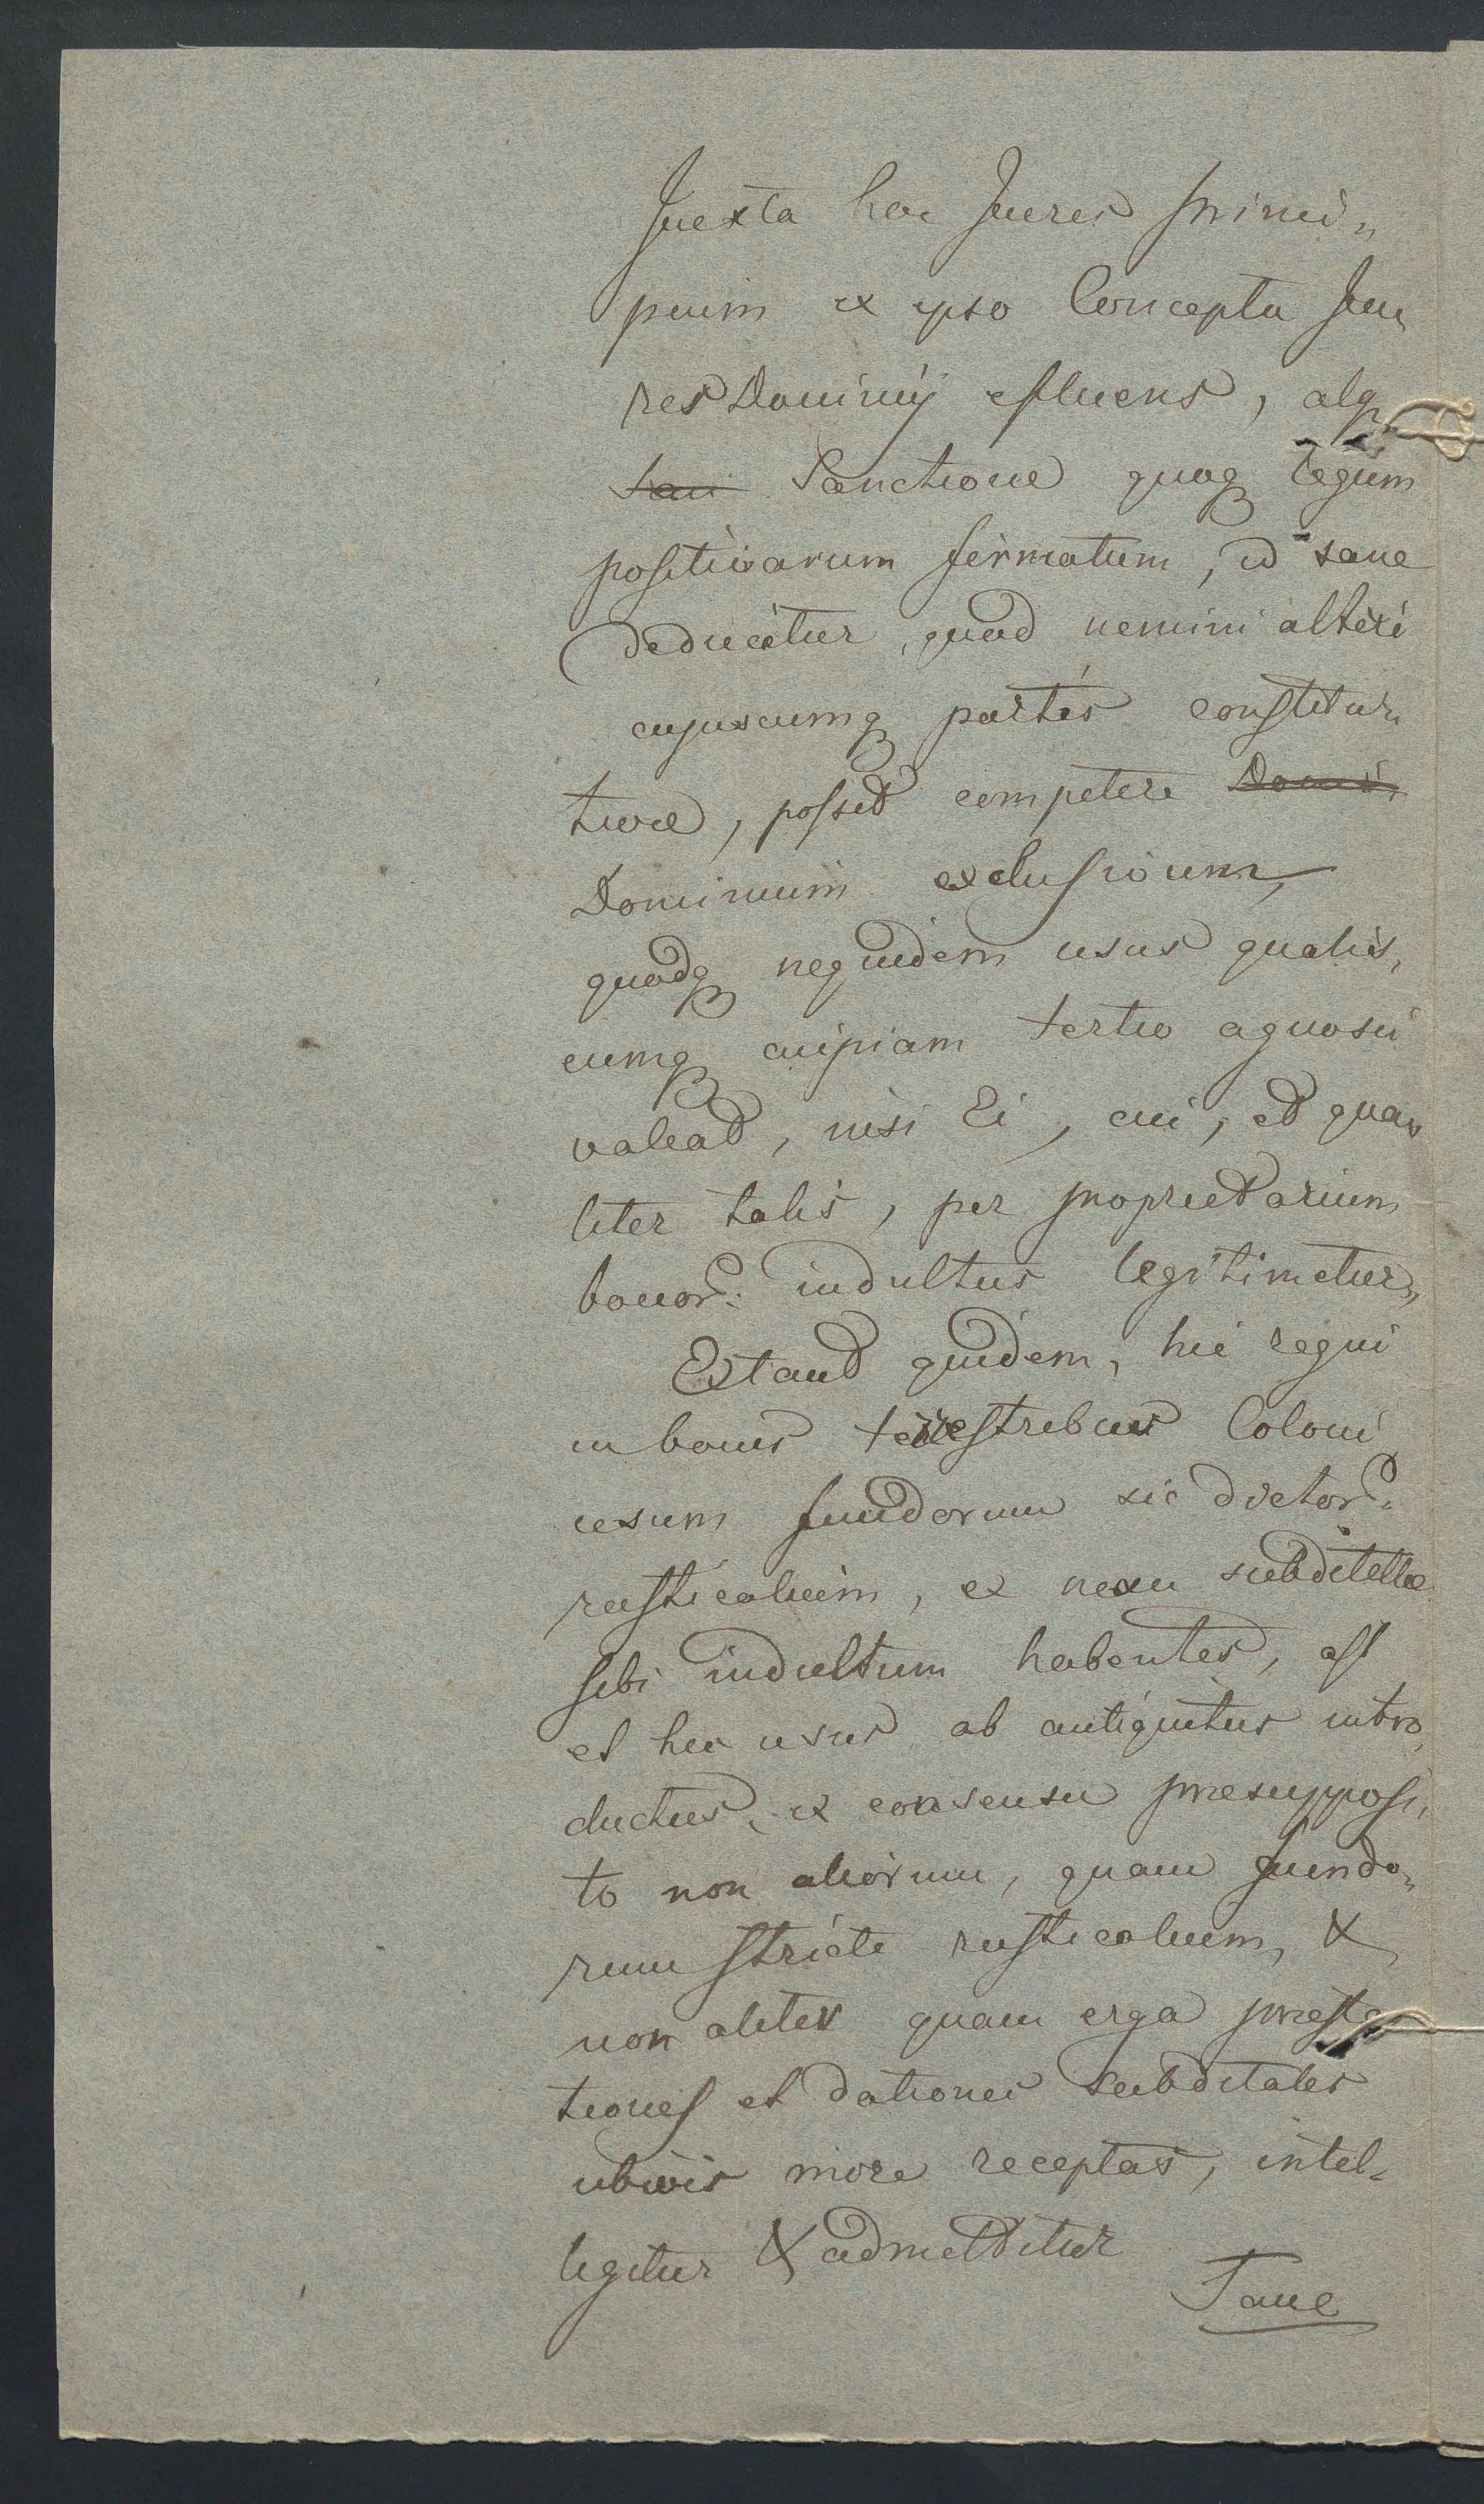 Juxta hoc Juris princi„
pium ex ipso Conceptu Ju„
res Dominij efluens, atq
San Sanctione quoq legum
positivarum firmatum, id sane
deducitur, quod nemini alteri
cujuscumq partis constitu„
tivae, possit competere Domi„
Dominium exclusivum,
quodq nequidem usus qualis„
cumq cuipiam tertio agnosci
valeat, nisi Ei, cui, et qua„
liter talis, per proprietarium
bonor: indultus legitimetur,
Extant quidem, hic regni
in bonis terrestribus Coloni
usum fundorum sic dictor:
rusticalium, ex nexu subditelae
sibi indultum habentes, ast
et hic usus ab antiquitus intro„
ductus, ex consensu praesupposi„
to non aliorum, quam fundo„
rum stricte rusticalium, &
non aliter quam erga praesta
tiones et dationes subditales
ubivis more receptas, intel„
ligitur & admittitur
Sane